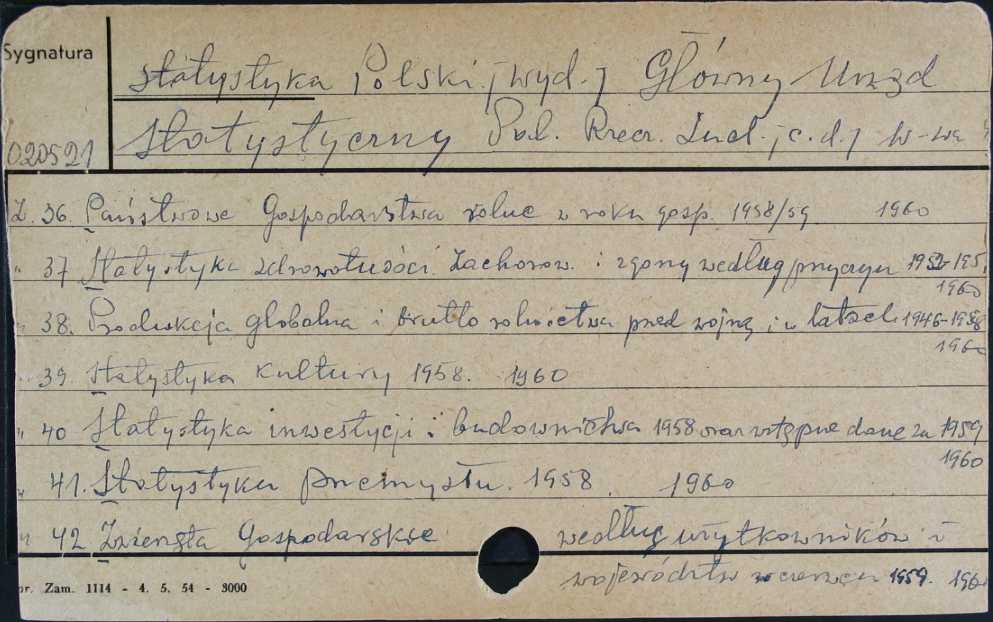 Sygnatura
020521
Statystyka Polski / wyd. / Główny Urząd
Statystyczny Pol. Rzecz. Lud. / c.d. / W-wa
Z. 36. Państwowe Gospodarstwa rolne w roku gosp. 1958/59 1960
" 37 Statystyka zdrowotności. Zachorow. i zgony według przyczyn 1960
" 38. Produkcja globalna i brutto rolnictwa przed wojną i w latach 1946-1958 1960
" 39. Statystyka Kultury 1958. 1960
" 40 Statystyka inwestycji i budownictwa 1958 oraz wstępne dane za 1959 1960
" 41. Statystyka przemysłu. 1958. 1960
" 42 Zwierzęta Gospodarskie według użytkowników i
województw w czerwcu 1959. 1960
nr. Zam. 1114 - 4. 5. 54 - 3000